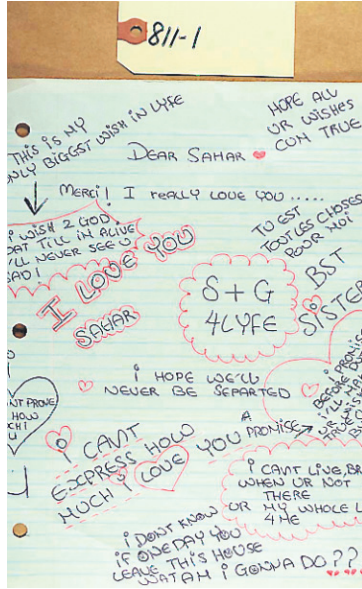 811-1
THIS iS MY
ONLY BIGGEST WISH IN LYFE
HOPE ALL
UR WISHES
CUM TRUE
DEAR SAHAR
MERCI! I REALLY LOVE YOU .....
i WiSH 2 GOD
DAT TILL iM ALIVE
i'LL NEVER SEE U
SAD!
I LOVE YOU
SAHAR
TU EST
TOUTLES CHOSES
POUR MOI
BST
SISTER
S + G
4LYFE
i HOPE WE'LL
NEVER BE SEPARTED
PROVE
HOW
U
i CANT
EXPRESS HOW
MUCH i LOVE YOU
A
PROMISE
i PROMISE
BEFORE
i CANT LIVE, BR
WHEN UR NOT
THERE
UR MY WHOLE L
4 ME
i DONT KNOW
iF ONE DAY YOU
LEAVE THiS HOUSE
WAT AM i GONNA DO??